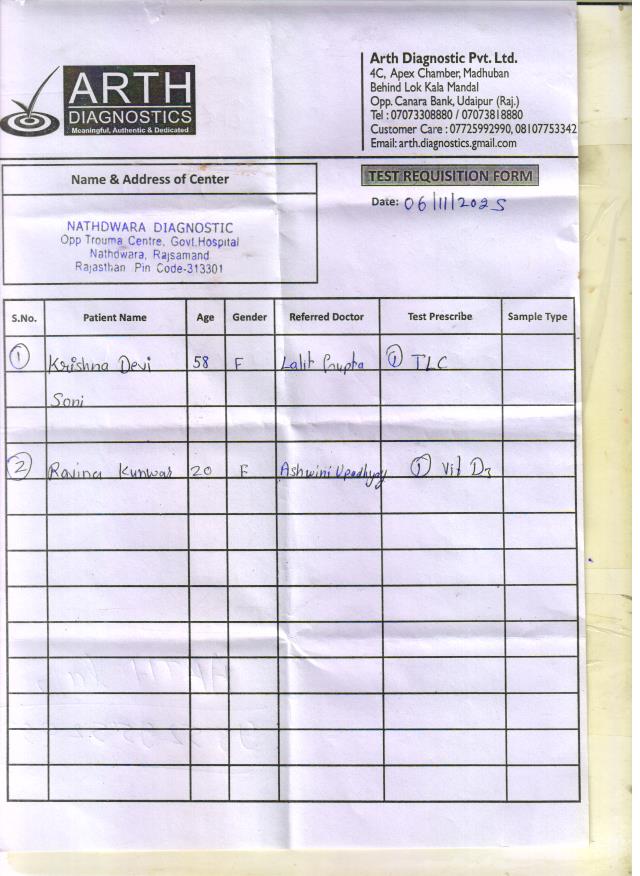 ARTH
DIAGNOSTICS
Meaningful, Authentic & Dedicated
Arth Diagnostic Pvt. Ltd.
4C, Apex Chamber, Madhuban
Behind Lok Kala Mandal
Opp. Canara Bank, Udaipur (Raj.)
Tel : 07073308880 / 07073818880
Customer Care : 07725992990, 08107753342
Email: arth.diagnostics.gmail.com
Name & Address of Center
NATHDWARA DIAGNOSTIC
Opp Trouma Centre, Govt.Hospital
Nathdwara, Rajsamand
Rajasthan Pin Code-313301
TEST REQUISITION FORM
Date: 06/11/2025
S.No. Patient Name Age Gender Referred Doctor Test Prescribe Sample Type
1 Krishna Devi 58 F Lalit Gupta 1 TLC
Soni
2 Ravina Kunwar 20 F Ashwini Upadhyay 1 Vit D3